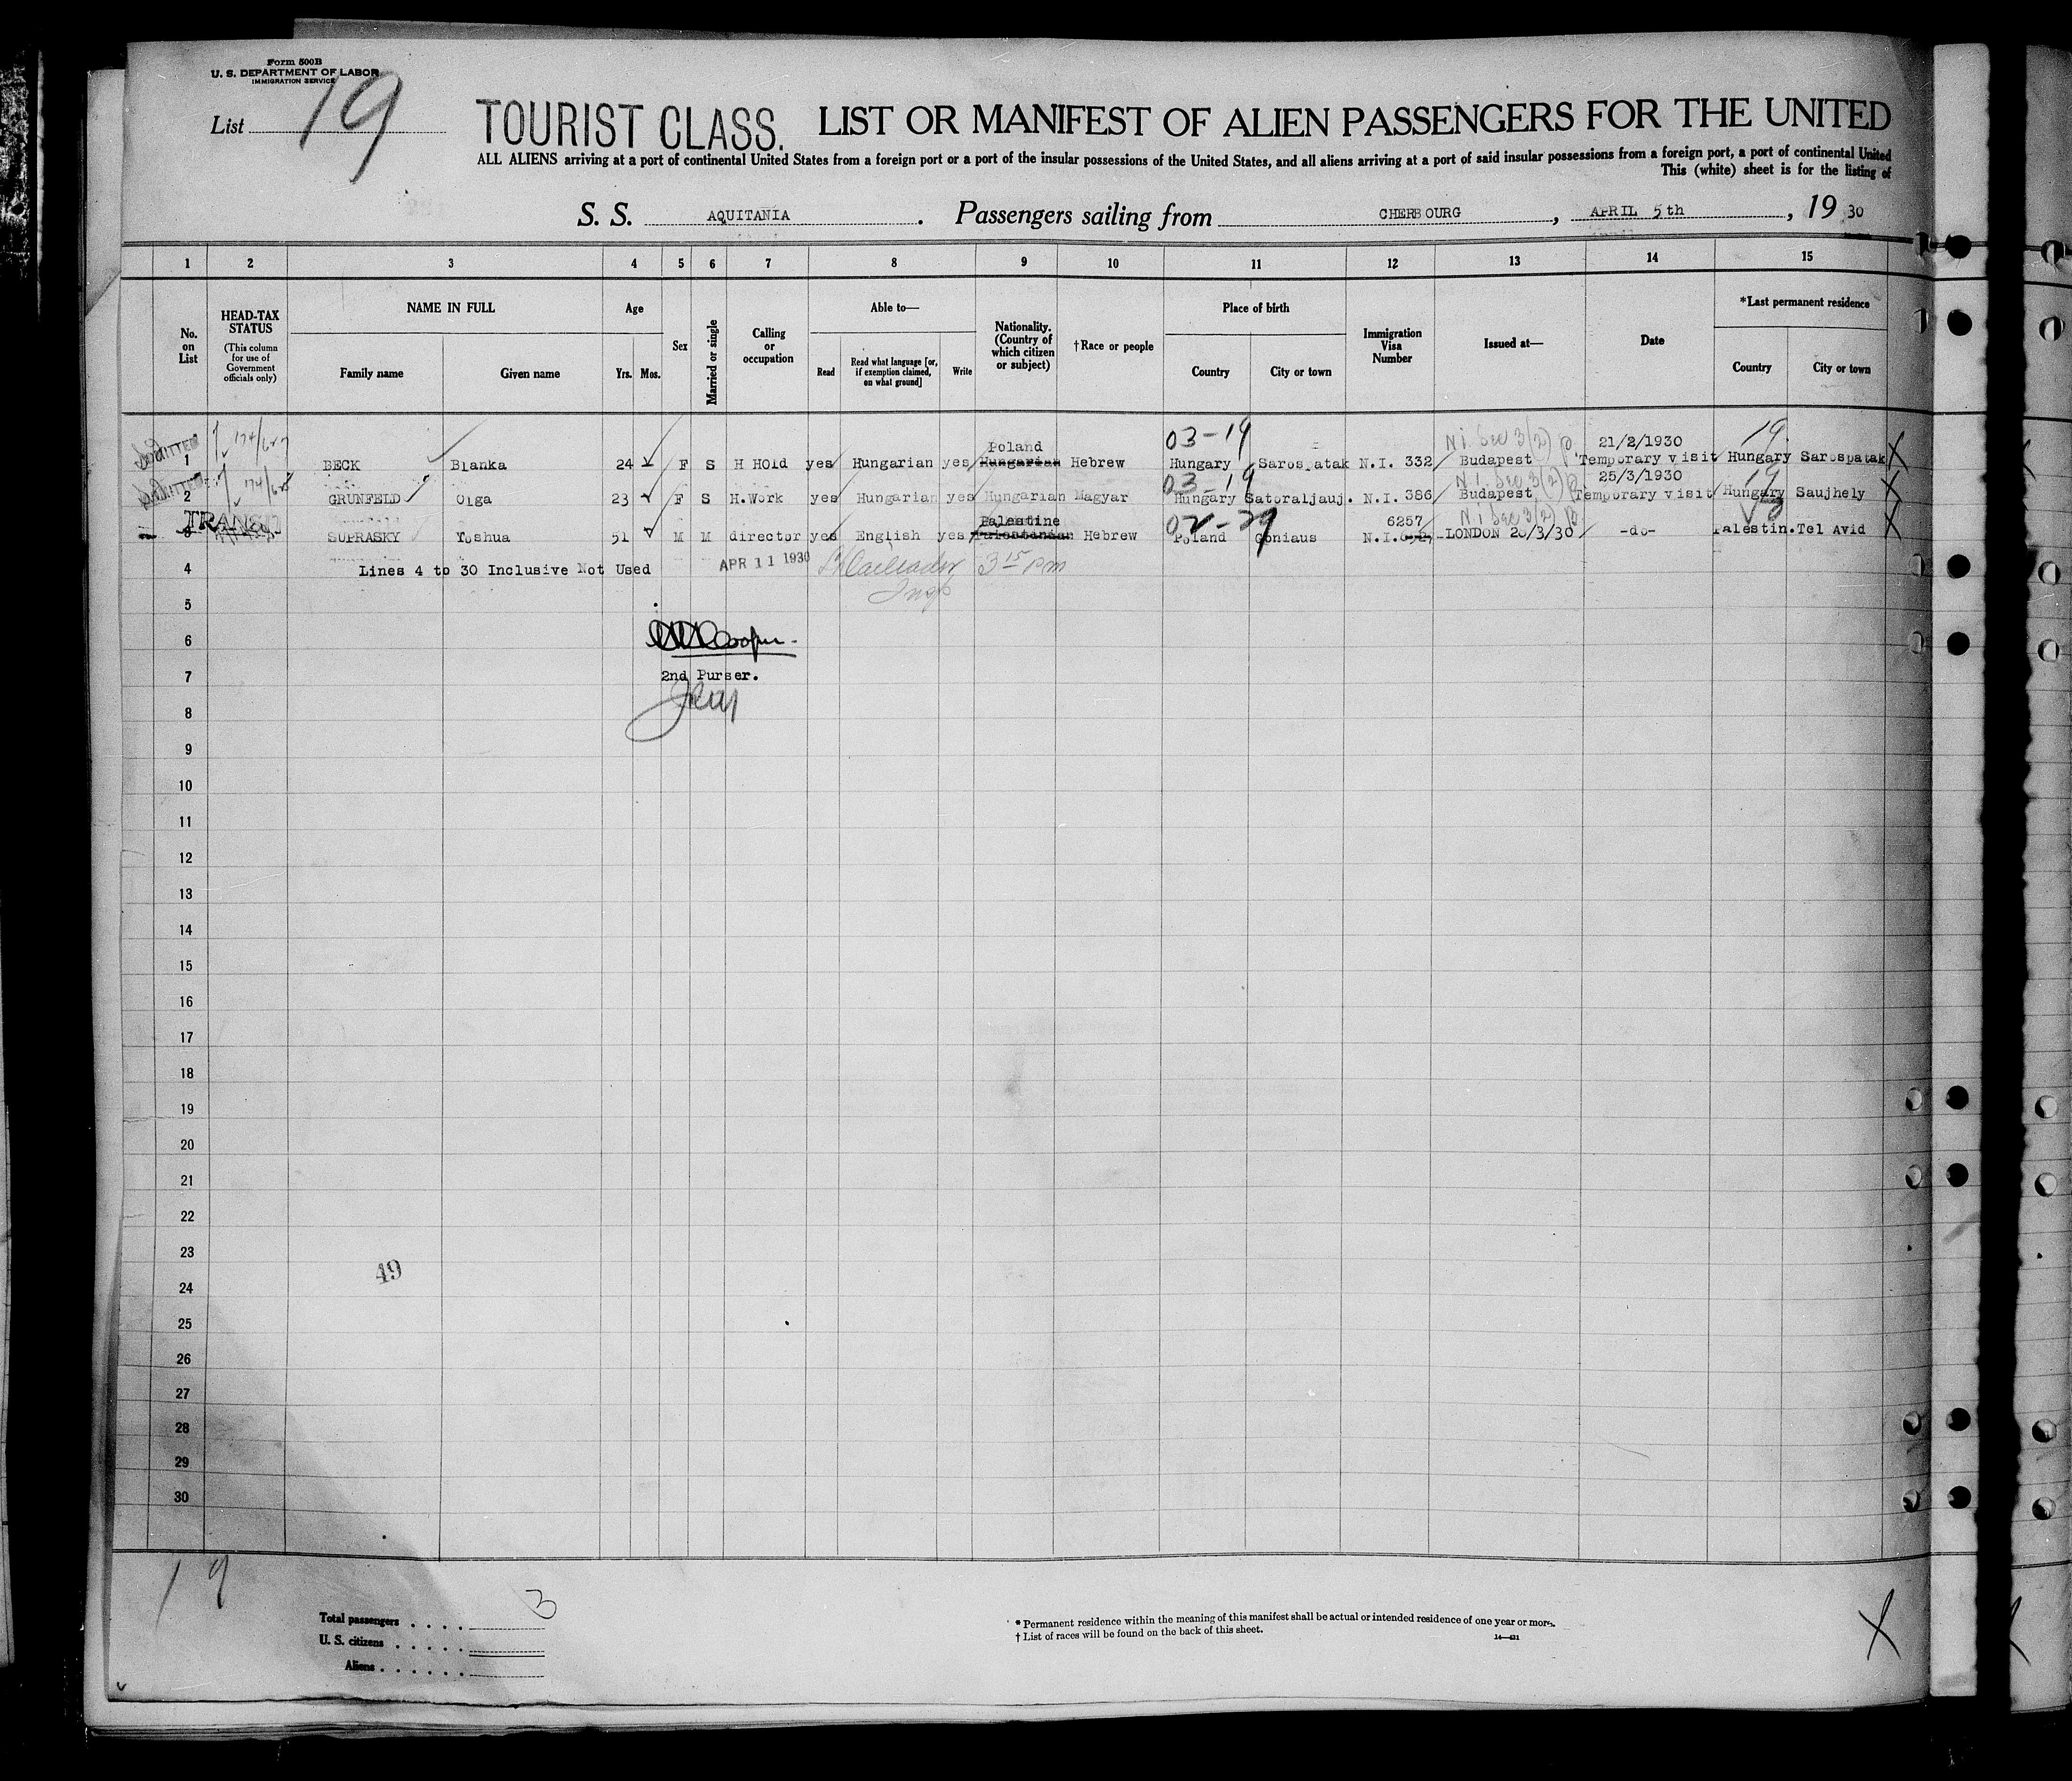 Form 500B
U. S. DEPARTMENT OF LABOR
IMMIGRATION SERVICE
List 19
TOURIST CLASS. LIST OR MANIFEST OF ALIEN PASSENGERS FOR THE UNITED
ALL ALIENS arriving at a port of continental United States from a foreign port or a port of the insular possessions of the United States, and all aliens arriving at a port of said insular possessions from a foreign port, a port of continental United
This (white) sheet is for the listing of
S. S. AQUITANIA. Passengers sailing from CHERBOURG, APRIL 5th, 19 30
1 2 3 4 5 6 7 8 9 10 11 12 13 14 15
No. on List
HEAD-TAX STATUS
(This column for use of Government officials only)
NAME IN FULL
Family name Given name
Age
Yrs. Mos.
Sex
Married or single
Calling or occupation
Able to—
Read
Read what language [or, if exemption claimed, on what ground]
Write
Nationality. (Country of which citizen or subject)
†Race or people
Place of birth
Country City or town
Immigration Visa Number
Issued at—
Date
*Last permanent residence
Country City or town
03-19 N.I. Sec 3(2) B 21/2/1930 19
ADMITTED 174/627 Poland
1 BECK Blanka 24 F S H Hold yes Hungarian yes Hungarian Hebrew Hungary Sarospatak N.I. 332 Budapest Temporary visit Hungary Sarospatak X
ADMITTED 174/628 03-19 N.I. Sec 3(2) B 25/3/1930 19
2 GRUNFELD Olga 23 F S H.Work yes Hungarian yes Hungarian Magyar Hungary Satoraljauj. N.I. 386 Budapest Temporary visit Hungary Saujhely X
TRANSIT Palestine 02-29 6257 N.I Sec 3(2) B
3 SUPRASKY Yoshua 51 M M director yes English yes Palestenian Hebrew Poland Goniaus N.I. LONDON 20/3/30 -do- Palestin. Tel Avid X
4 Lines 4 to 30 Inclusive Not Used APR 11 1930 3 15 pm
Insp
5
6 Cooper
7 2nd Purser.
8
9
10
11
12
13
14
15
16
17
18
19
20
21
22
23
49
24
25
26
27
28
29
30
19
Total passengers . . . . 3
U. S. citizens . . . . .
Aliens . . . . . .
* Permanent residence within the meaning of this manifest shall be actual or intended residence of one year or more.
† List of races will be found on the back of this sheet.
X